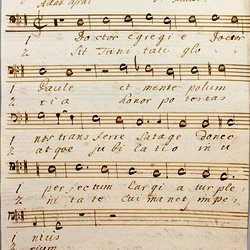 1 Doctor egregie Doctor
2 Sit Trinitati glo-
1 Paule et mente polum
2 ria honor potestas
1 nos transferre satage Donec
2 atque jubilatio in u
1 perfectum largiatur ple
2 nitate cui manet impe-
1 nius
2 rium